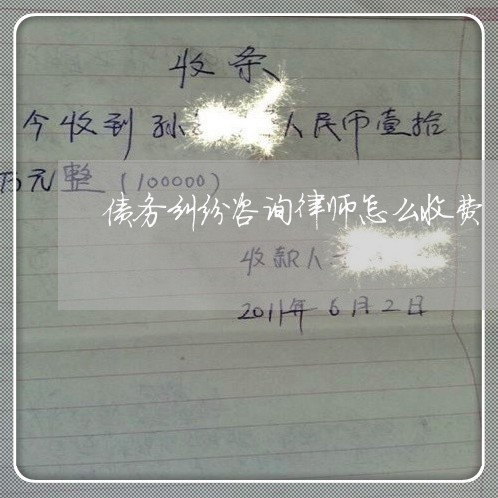 收条
今收到孙 人民币壹拾
万元整（100000）
债务纠纷咨询律师怎么收费
收款人
2011年6月2日